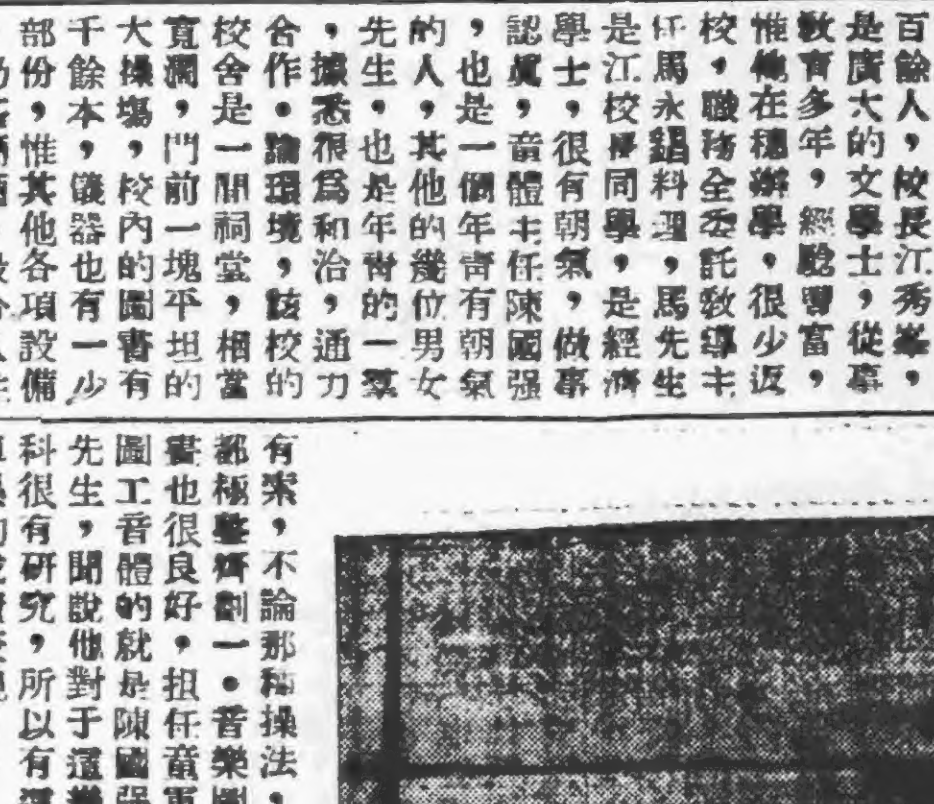 百餘人，校長江秀峯，
是廣大的文學士，從事
教育多年，經驗豐富，
惟他在穗辦學，很少返
校，職務全委託教導主
任馬永錩料理，馬先生
是江校長同學，是經濟
學士，很有朝氣，做事
認眞，音體主任陳國强
，也是一個年靑有朝氣
的人，其他的幾位男女
先生，也是年靑的一羣
，據悉很爲和洽，通力
合作。論環境，該校的
校舍是一間祠堂，相當
寬濶，門前一塊平坦的
大操塲，校內的圖書有
千餘本，儀器也有一少
部份，惟其他各項設備
有素，不論那種操法，
都極整齊劃一。音樂圖
畫也很良好，担任童軍
圖工音體的就是陳國强
先生，聞說他對于這幾
科很有研究，所以有這